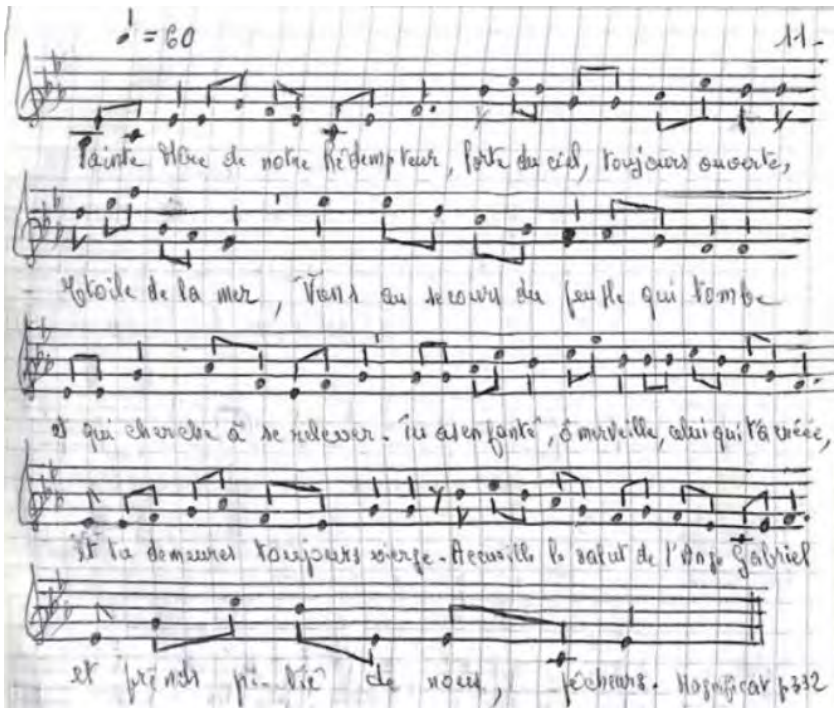 = 60 11-
Sainte Mère de notre Rédempteur, Porte du ciel, toujours ouverte,
Etoile de la mer, Viens au secours du peuple qui tombe
et qui cherche à se relever. Tu as enfanté, ô merveille, celui qui t'a créée,
Et tu demeures toujours vierge. Accueille le salut de l'Ange Gabriel
et prends pi-tié de nous, pécheurs. Magnificat p332